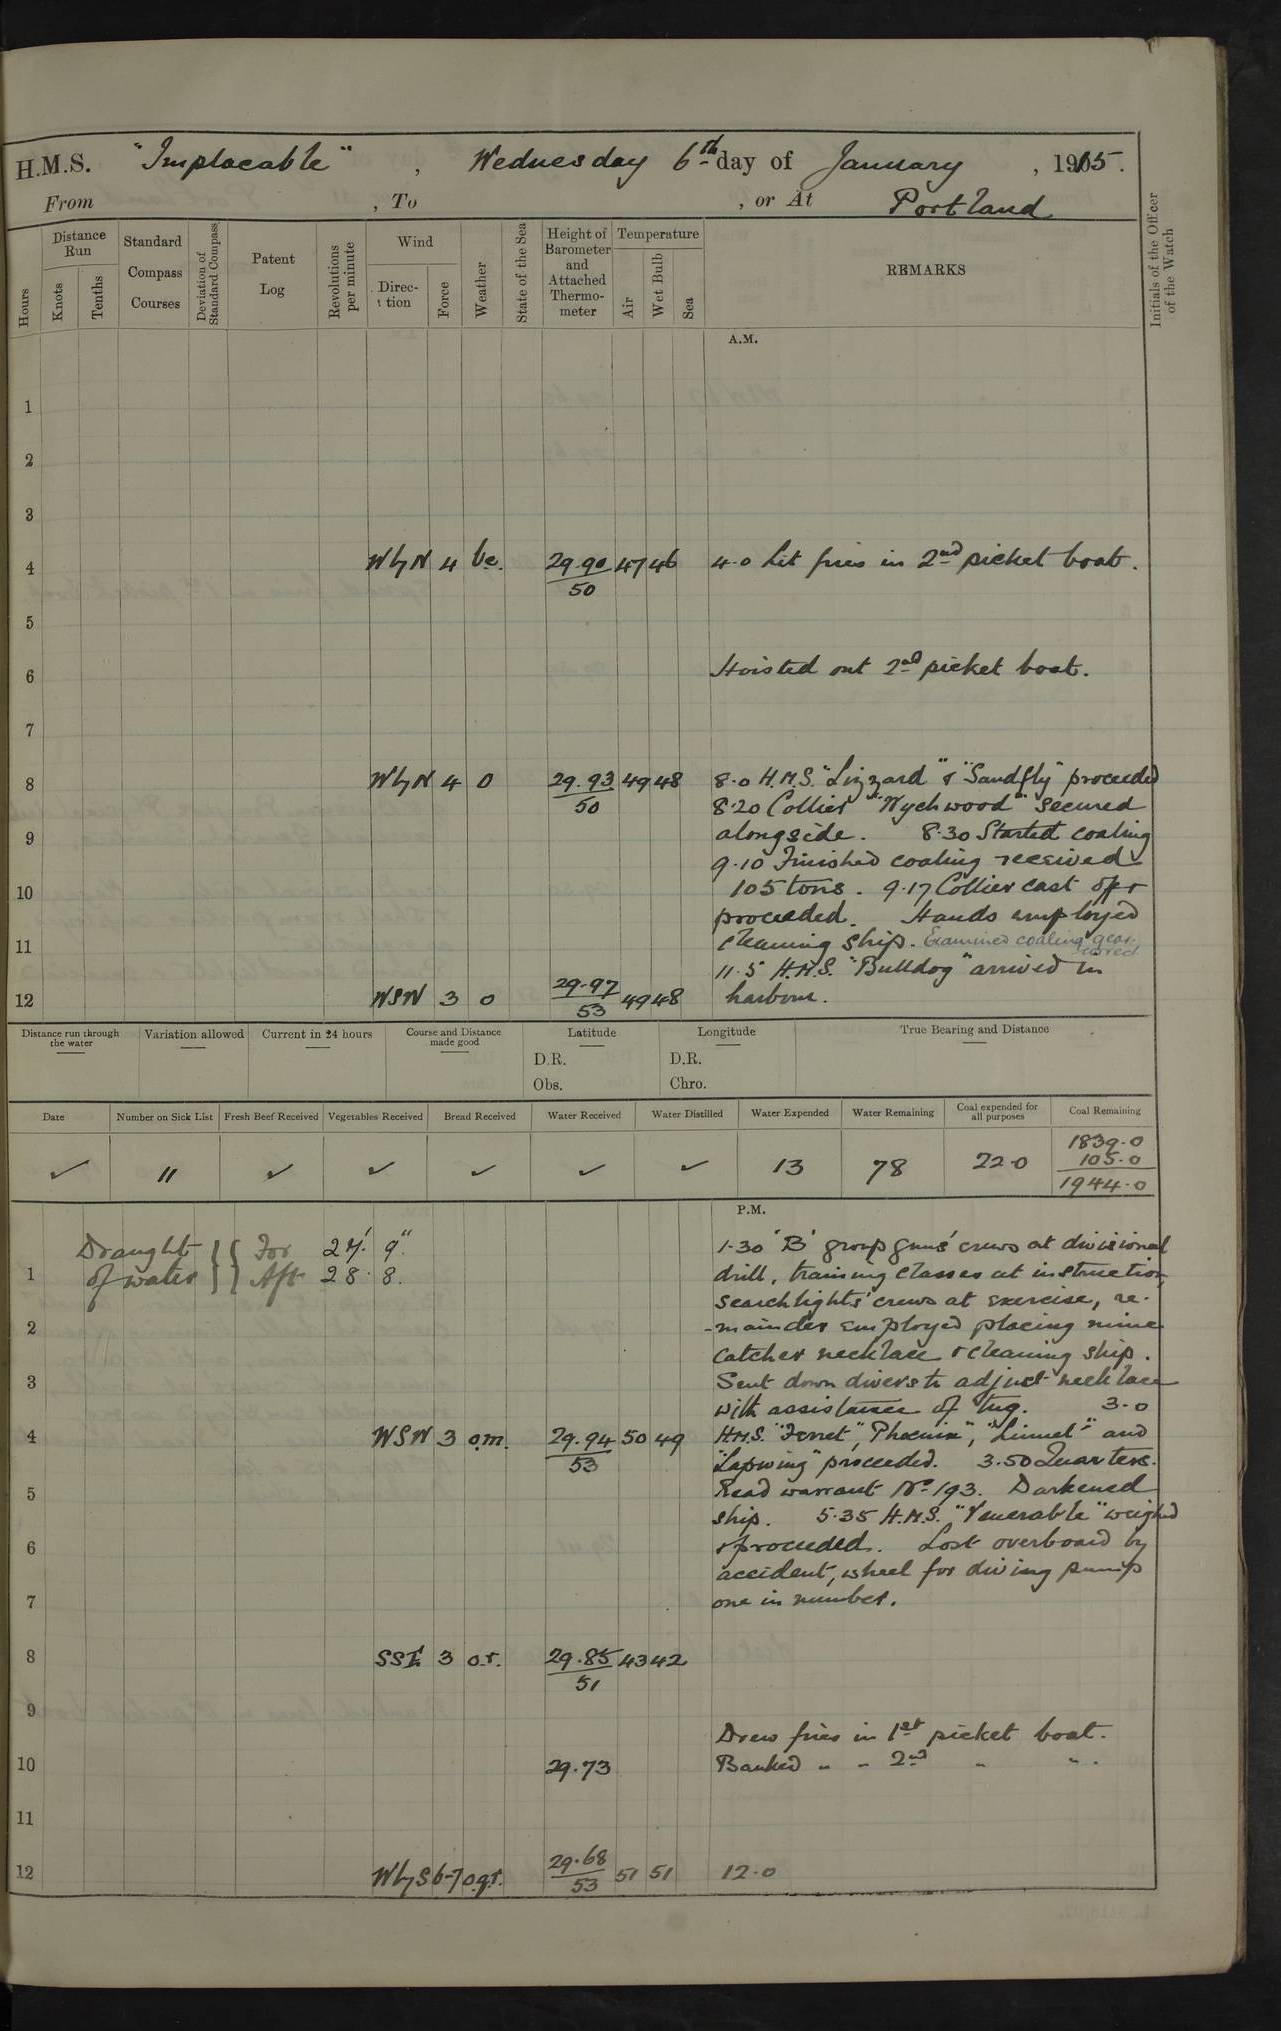 H.M.S. "Implacable", Wednesday 6th day of January, 1915.
From , To , or At Portland
Hours
Distance Run
Knots
Tenths
Standard Compass Courses
Deviation of Standard Compass
Patent Log
Revolutions per minute
Wind
Direction
Force
Weather
State of the Sea
Height of Barometer and Attached Thermometer
Temperature
Air
Wet Bulb
Sea
REMARKS
Initials of the Officer of the Watch
A.M.
1
2
3
4 WbyN 4 bc. 29.90/50 47 46 4.0 Lit fires in 2nd picket boat.
5
6 Hoisted out 2nd picket boat.
7
8 WbyN 4 o 29.93/50 49 48 8.0 H.M.S. "Lizzard" & "Sandfly" proceeded
8.20 Collier "Wychwood" secured
9 alongside. 8.30 Started coaling
9.10 Finished coaling received
10 105 tons. 9.17 Collier cast off &
proceeded. Hands employed
11 cleaning ship. Examined coaling gear.
11.5 H.M.S. "Bulldog" arrived in
12 WSW 3 o 29.97/53 49 48 harbour.
Distance run through the water
Variation allowed
Current in 24 hours
Course and Distance made good
Latitude
D.R.
Obs.
Longitude
D.R.
Chro.
True Bearing and Distance
Date
Number on Sick List
Fresh Beef Received
Vegetables Received
Bread Received
Water Received
Water Distilled
Water Expended
Water Remaining
Coal expended for all purposes
Coal Remaining
✓ 11 ✓ ✓ ✓ ✓ ✓ 13 78 22.0 1839.0
105.0
1944.0
P.M.
Draught of water } { For 27' 9"
Aft 28. 8.
1.30 'B' group guns' crews at divisional
1 drill, training classes at instruction
searchlights' crews at exercise, re-
2 -mainder employed placing mine
catcher necklace & cleaning ship.
3 Sent down divers to adjust necklace
with assistance of tug. 3.0
4 WSW 3 o.m. 29.94/53 50 49 H.M.S. "Ferret", Phoenix", "Linnet" and
"Lapwing" proceeded. 3.50 Quarters.
5 Read warrant No 193. Darkened
ship. 5.35 H.M.S. "Venerable" weighed
6 & proceeded. Lost overboard by
accident, wheel for diving pump
7 one in number.
8 SSE 3 o.r. 29.85/51 43 42
9
Drew fires in 1st picket boat.
10 29.73 Banked " " 2nd " ".
11
12 WbyS 6-7 o.q.r. 29.68/53 51 51 12.0